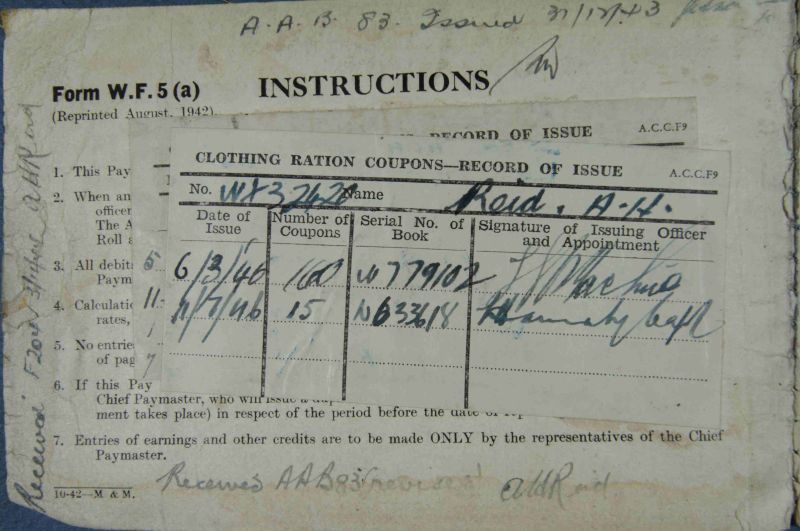 A.A.B. 83. Issued 31/12/43
Form W.F. 5 (a)
(Reprinted August, 1942).
INSTRUCTIONS
RECORD OF ISSUE
A.C.C.F9
CLOTHING RATION COUPONS—RECORD OF ISSUE
A.C.C.F9
No.
Name Reid. A.H.
Date of Issue
Number of Coupons
Serial No. of Book
Signature of Issuing Officer and Appointment
6/3/46 160 W779102
11/7/46 15 N633618 Capt
1. This Pay
2. When an
officer
The A
Roll a
3. All debits
Paym
4. Calculatio
rates,
5. No entrie
of pag
6. If this Pay
Chief Paymaster, who will issue a
ment takes place) in respect of the period before the date of
7. Entries of earnings and other credits are to be made ONLY by the representatives of the Chief
Paymaster.
10-42—M & M.
Received AAB83 AHReid
Received AHReid